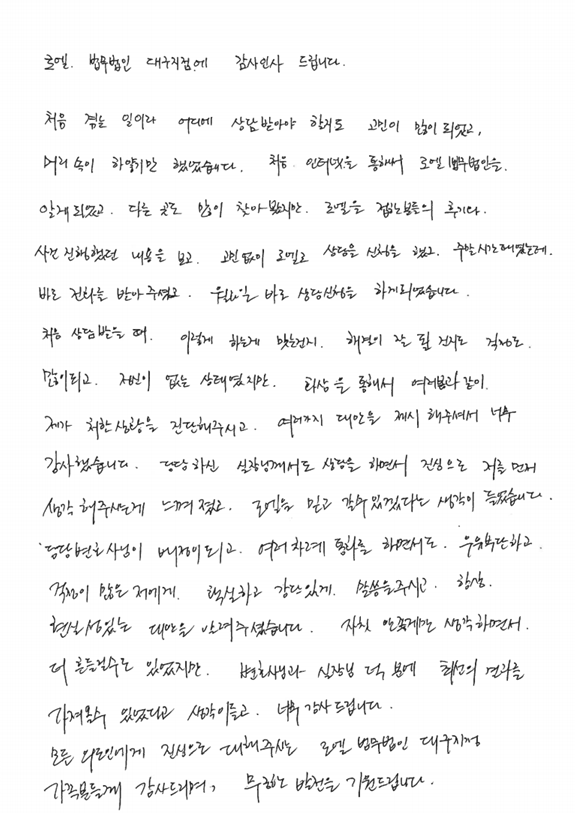 로엘 법무법인 대구지점에 감사인사 드립니다.
처음 겪는 일이라 어디에 상담받아야 할지도 고민이 많이 되었고,
머리 속이 하얗기만 했었습니다. 처음 인터넷을 통해서 로엘 법무법인을.
알게되었고. 다른 곳도 많이 찾아봤지만. 로엘을 겪는분들의 후기와.
사건 진행했던 내용을 보고. 고민없이 로엘로 상담을 신청을 했고. 주말시간대였는데.
바로 전화를 받아주셨고. 월요일 바로 상담신청을 하게되었습니다.
처음 상담받을 때. 이렇게 하는게 맞는건지. 해결이 잘 될 건지도 걱정도.
많이되고. 자신이 없는 상태였지만. 화상을 통해서 여러분과 같이.
제가 처한상황을 진단해주시고. 여러가지 대안을 제시 해주셔서 너무
감사했습니다. 담당하신 실장님께서도 상담을 하면서 진심으로 저를 먼저
생각해주시는게 느껴졌고. 로엘을 믿고 갈수있겠다는 생각이 들었습니다.
담당변호사님이 배정이되고. 여러차례 통화를 하면서도. 우유부단하고.
걱정이 많은 저에게. 확실하고 강단있게. 말씀을주시고. 항상.
현실성있는 대안을 내려주셨습니다. 자칫 안좋게만 생각하면서.
더 흔들릴수도 있었지만. 변호사님과 실장님 덕분에 최선의 결과를
가져올수 있었다고 생각이들고. 너무 감사드립니다.
모든 의뢰인에게 진심으로 대해주시는 로엘 법무법인 대구지점
가족분들께 감사드리며, 무한한 발전을 기원드립니다.